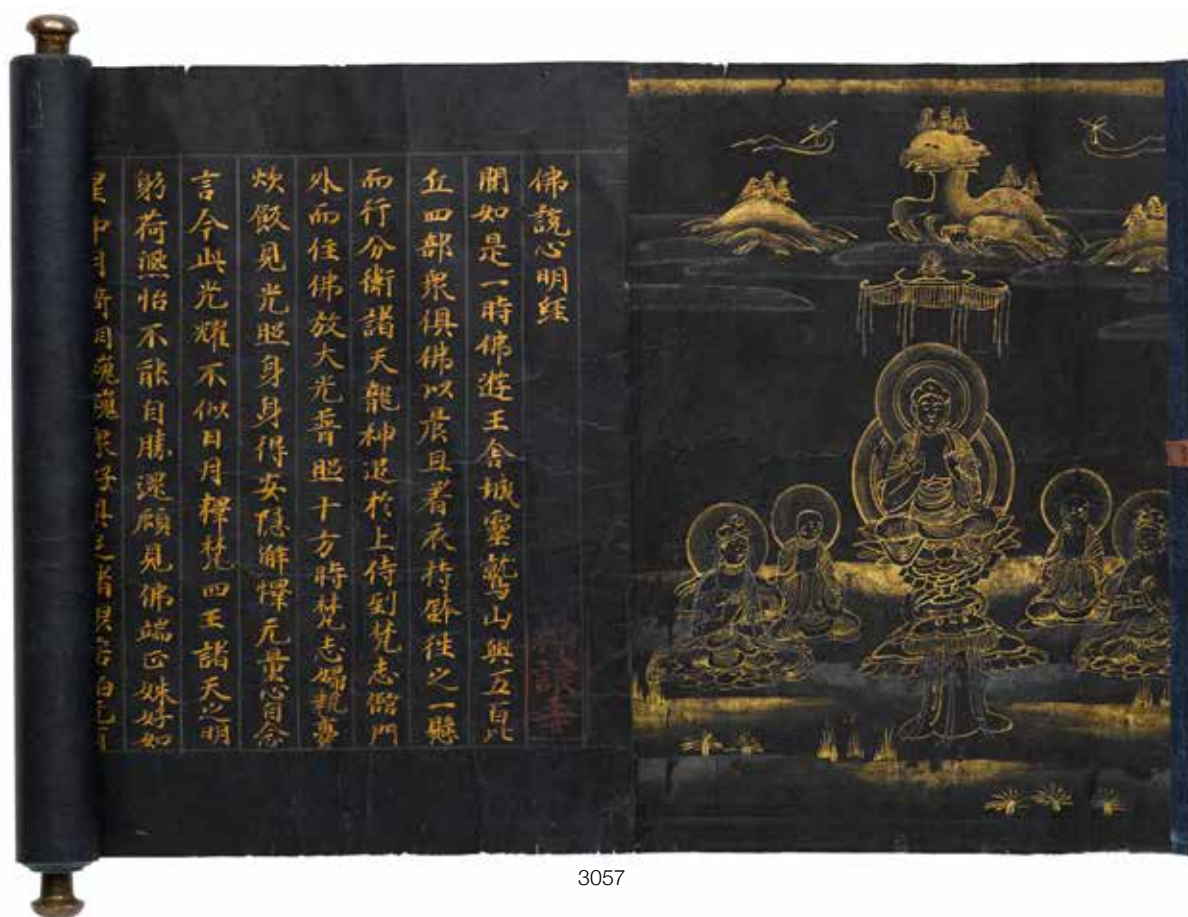 佛說心明經
神護寺
聞如是一時佛遊王舍城靈鷲山與五百比
丘四部衆俱佛以晨旦著衣持鉢往之一縣
而行分衛諸天龍神追於上侍到梵志館門
外而住佛放大光普照十方時梵志婦執爨
炊飯見光照身身得安隱解懌无量心自念
言今此光耀不似日月釋梵四王諸天之明
躬荷濕怡不能自勝還顧見佛端正姝好如
星中月
巍巍衆好具足
3057